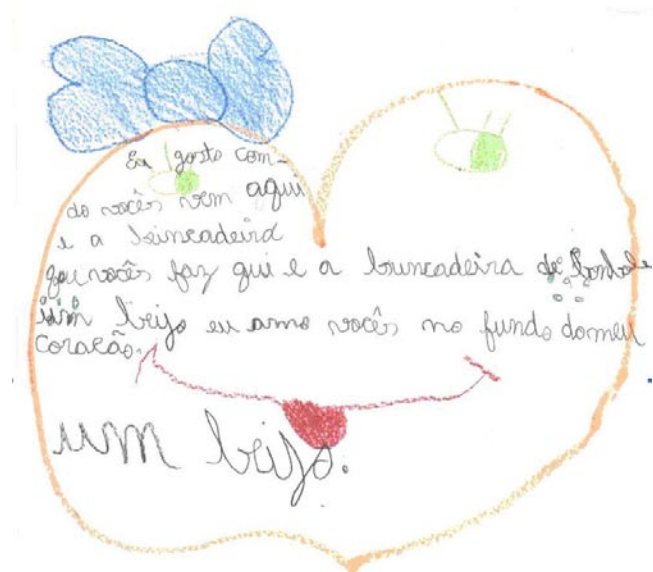 Eu gosto com-
do vocês vem aqui
e a brincadeira
que vocês faz qui e a bruncadeira de
um beijo eu amo vocês no fundo domeu
coração.
um beijo.